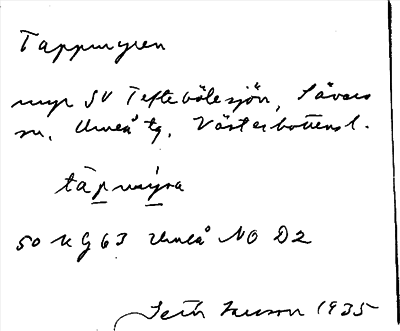 Tappmyren
myr SV Teftebölesjön, Sävars
sn, Umeå tg, Västerbottens l.
tàpmýra
50 K G 63 Umeå NO D2
1935